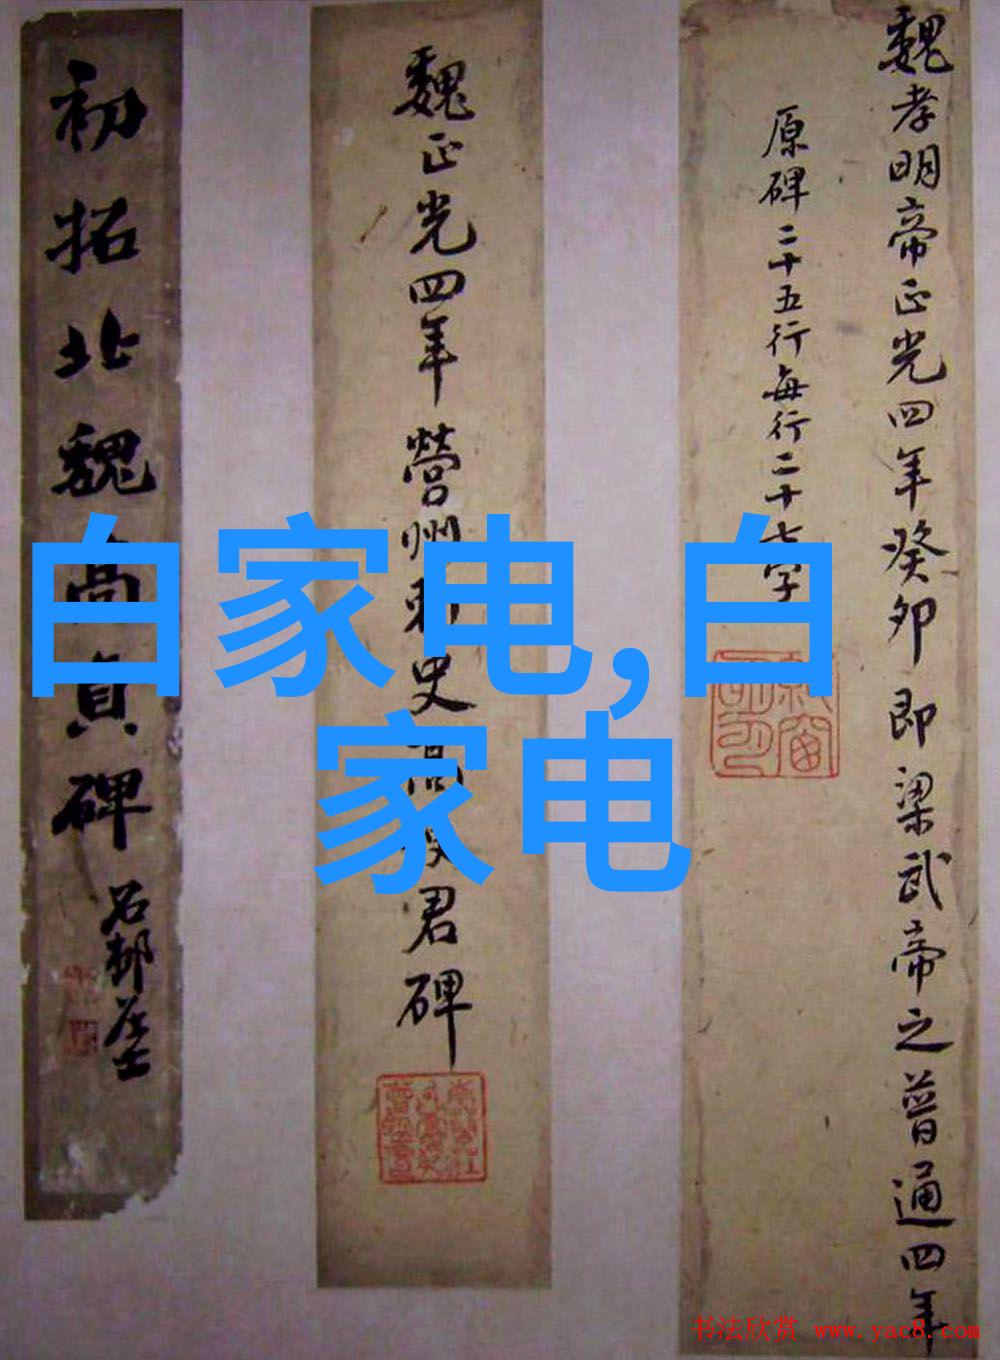 魏孝明帝正光四年癸卯即梁武帝之普通四年
原碑二十五行每行二十七字
魏正光四年營州刺史高使君碑
初拓北魏高貞碑
石邨居士
白家电,白
家电
书法欣赏 www.yac8.com